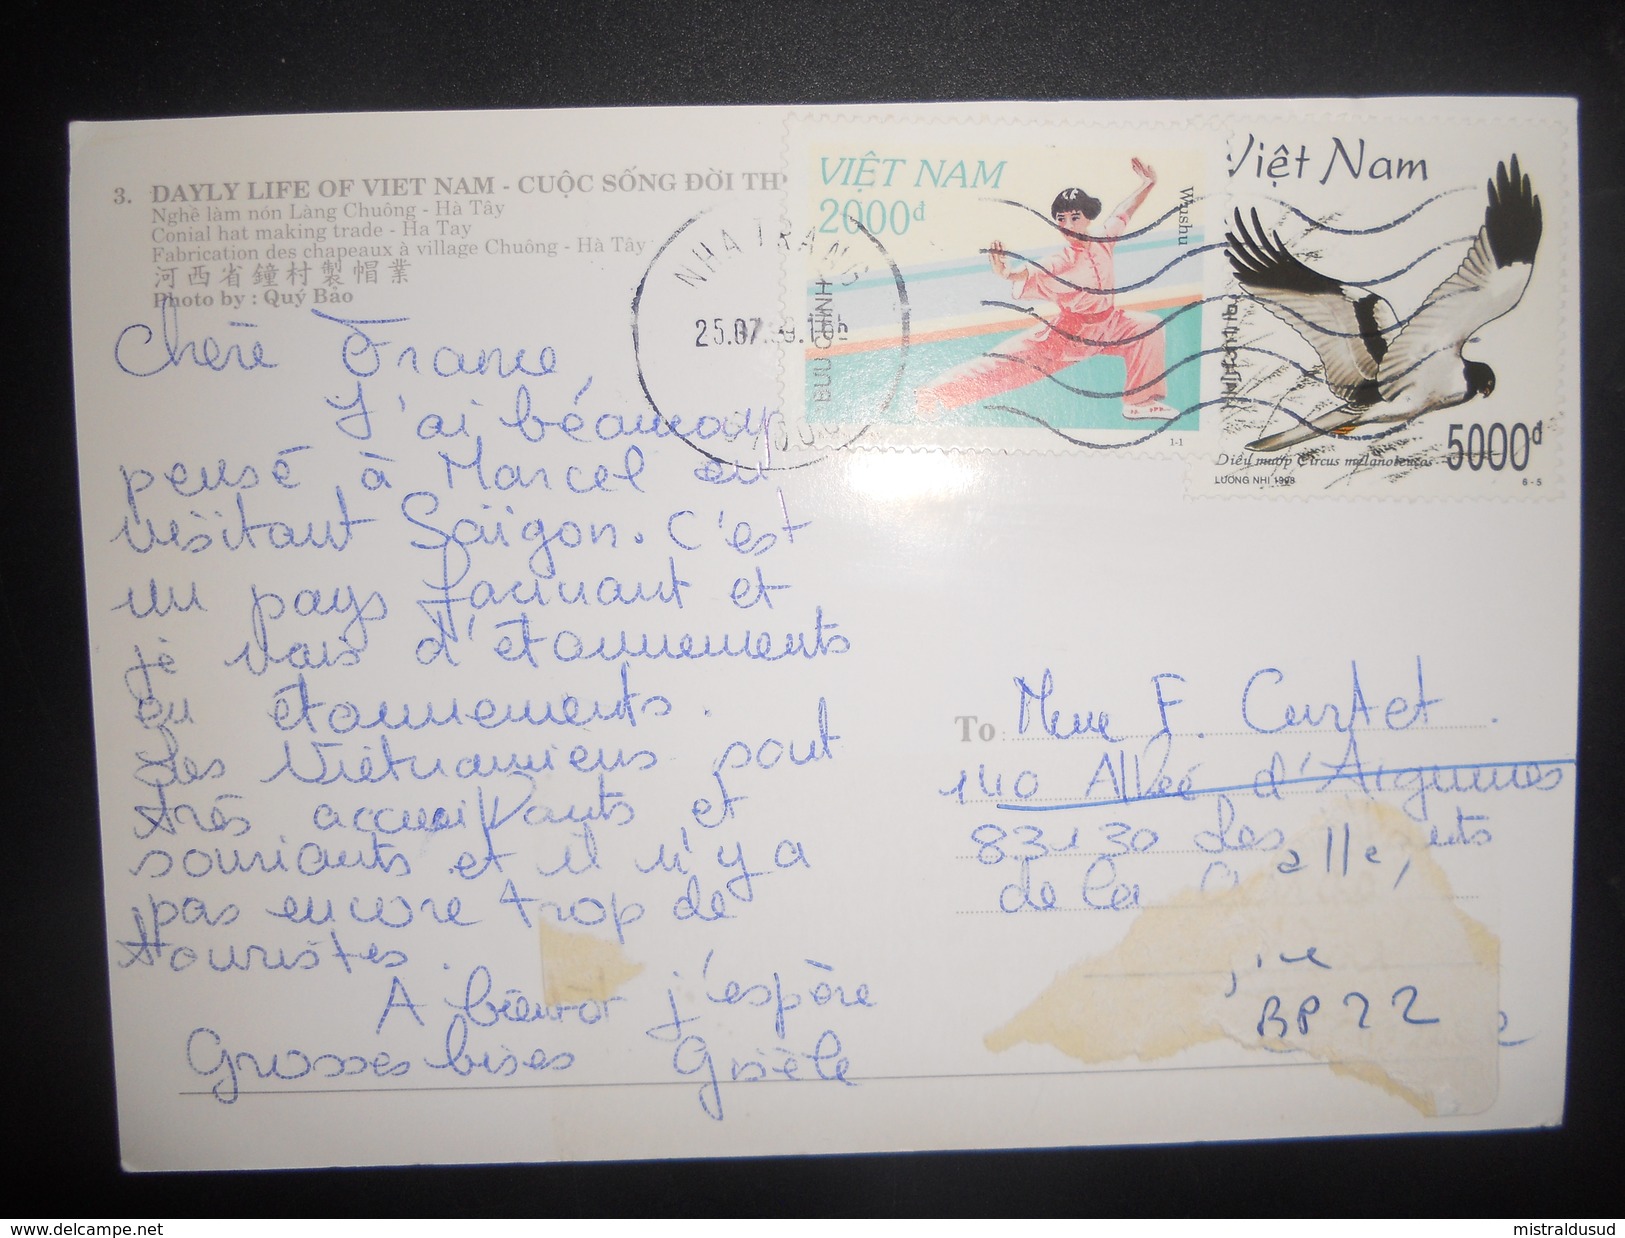 3. DAYLY LIFE OF VIET NAM - CUỘC SỐNG ĐỜI TH
Nghề làm nón Làng Chuông - Hà Tây
Conial hat making trade - Ha Tay
Fabrication des chapeaux à village Chuông - Hà Tây
河西省鐘村製帽業
Photo by : Quý Bảo
VIỆT NAM
2000đ
Wushu
BƯU CHÍNH
1-1
Việt Nam
5000đ
Diều mướp Circus melanoleucos
LƯƠNG NHỊ 1998
6-5
NHA TRANG
25.07
Chère France,
J'ai beaucoup
pensé à Marcel en
visitant Saïgon. C'est
un pays fascinant et
je vais d'étonnements
en étonnements.
Les Vietnamiens sont
très accueillants et
souriants et il n'y a
pas encore trop de
touristes.
A bientôt j'espère
Grosses bises Gisèle
To Mme F. Curtet
140 Allée d'Aiguines
83130 Les
de la
BP 22
delcampe.net
mistraldusud